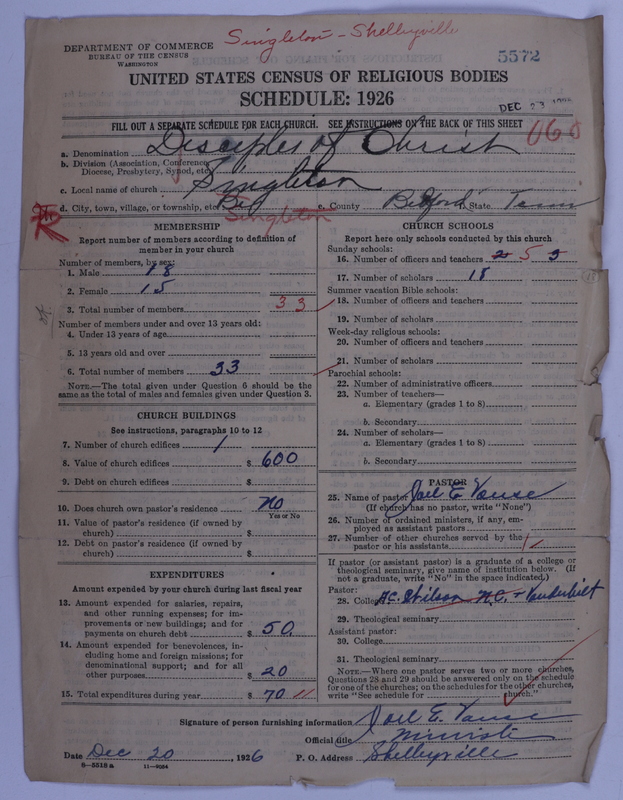 Singleton - Shelbyville
DEPARTMENT OF COMMERCE
BUREAU OF THE CENSUS
WASHINGTON
5572
UNITED STATES CENSUS OF RELIGIOUS BODIES
SCHEDULE: 1926
DEC 23
FILL OUT A SEPARATE SCHEDULE FOR EACH CHURCH. SEE INSTRUCTIONS ON THE BACK OF THIS SHEET
a. Denomination Disciples of Christ
b. Division (Association, Conference, Diocese, Presbytery, Synod, etc.)
c. Local name of church Singleton
d. City, town, village, or township, etc. Singleton e. County Bedford State Tenn
MEMBERSHIP
Report number of members according to definition of
member in your church
Number of members, by sex:
1. Male 18
2. Female 15
3. Total number of members 33
Number of members under and over 13 years old:
4. Under 13 years of age
5. 13 years old and over
6. Total number of members 33
NOTE.—The total given under Question 6 should be the
same as the total of males and females given under Question 3.
CHURCH BUILDINGS
See instructions, paragraphs 10 to 12
7. Number of church edifices 1
8. Value of church edifices $ 600
9. Debt on church edifices $
10. Does church own pastor's residence No
Yes or No
11. Value of pastor's residence (if owned by
church) $
12. Debt on pastor's residence (if owned by
church) $
EXPENDITURES
Amount expended by your church during last fiscal year
13. Amount expended for salaries, repairs,
and other running expenses; for im-
provements or new buildings; and for
payments on church debt $ 50
14. Amount expended for benevolences, in-
cluding home and foreign missions; for
denominational support; and for all
other purposes $ 20
15. Total expenditures during year $ 70
CHURCH SCHOOLS
Report here only schools conducted by this church
Sunday schools:
16. Number of officers and teachers 2 5
17. Number of scholars 18
Summer vacation Bible schools:
18. Number of officers and teachers
19. Number of scholars
Week-day religious schools:
20. Number of officers and teachers
21. Number of scholars
Parochial schools:
22. Number of administrative officers
23. Number of teachers—
a. Elementary (grades 1 to 8)
b. Secondary
24. Number of scholars—
a. Elementary (grades 1 to 8)
b. Secondary
PASTOR
25. Name of pastor Joel E Vause
(If church has no pastor, write "None")
26. Number of ordained ministers, if any, em-
ployed as assistant pastors
27. Number of other churches served by the
pastor or his assistants
If pastor (or assistant pastor) is a graduate of a college or
theological seminary, give name of institution below. (If
not a graduate, write "No" in the space indicated.)
Pastor:
28. College A.C. Wilson N.C. + Vanderbilt
29. Theological seminary
Assistant pastor:
30. College
31. Theological seminary
NOTE.—Where one pastor serves two or more churches,
Questions 28 and 29 should be answered only on the schedule
for one of the churches; on the schedules for the other churches,
write "See schedule for church."
Signature of person furnishing information Joel E. Vause
Official title Minister
Date Dec 20, 1926 P. O. Address Shelbyville
8—5518a 11—9054